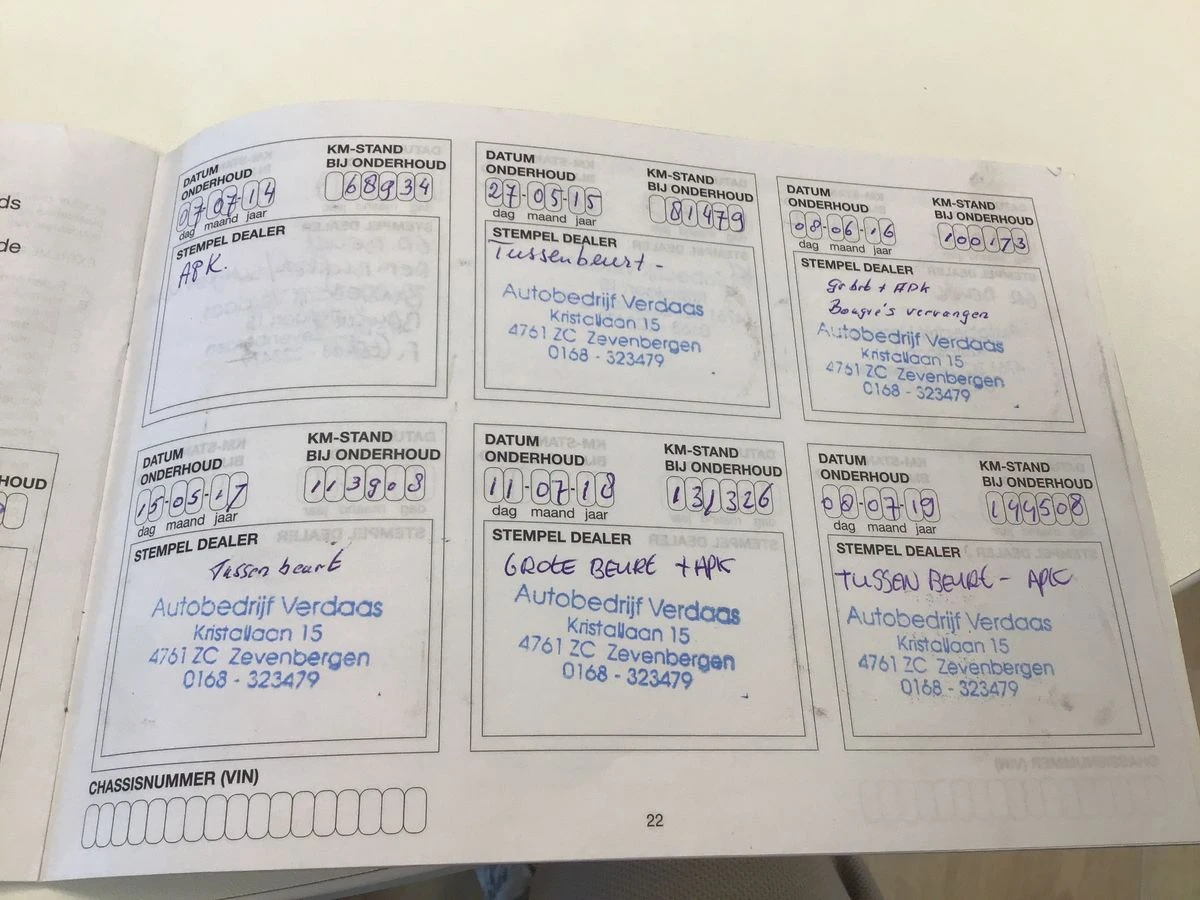 ds
de
HOUD
DATUM
ONDERHOUD
KM-STAND
BIJ ONDERHOUD
07-07-14
68934
dag maand jaar
STEMPEL DEALER
APK.
DATUM
ONDERHOUD
KM-STAND
BIJ ONDERHOUD
27-05-15
81479
dag maand jaar
STEMPEL DEALER
Tussenbeurt -
Autobedrijf Verdaas
Kristallaan 15
4761 ZC Zevenbergen
0168 - 323479
DATUM
ONDERHOUD
KM-STAND
BIJ ONDERHOUD
08-06-16
100173
dag maand jaar
STEMPEL DEALER
Gr brt + APK
Bougie's vervangen
Autobedrijf Verdaas
Kristallaan 15
4761 ZC Zevenbergen
0168 - 323479
DATUM
ONDERHOUD
KM-STAND
BIJ ONDERHOUD
15-05-17
113908
dag maand jaar
STEMPEL DEALER
Tussen beurt
Autobedrijf Verdaas
Kristallaan 15
4761 ZC Zevenbergen
0168 - 323479
DATUM
ONDERHOUD
KM-STAND
BIJ ONDERHOUD
11-07-18
131326
dag maand jaar
STEMPEL DEALER
GROTE BEURT + APK
Autobedrijf Verdaas
Kristallaan 15
4761 ZC Zevenbergen
0168 - 323479
DATUM
ONDERHOUD
KM-STAND
BIJ ONDERHOUD
08-07-19
144508
dag maand jaar
STEMPEL DEALER
TUSSEN BEURT - APK
Autobedrijf Verdaas
Kristallaan 15
4761 ZC Zevenbergen
0168 - 323479
CHASSISNUMMER (VIN)
22